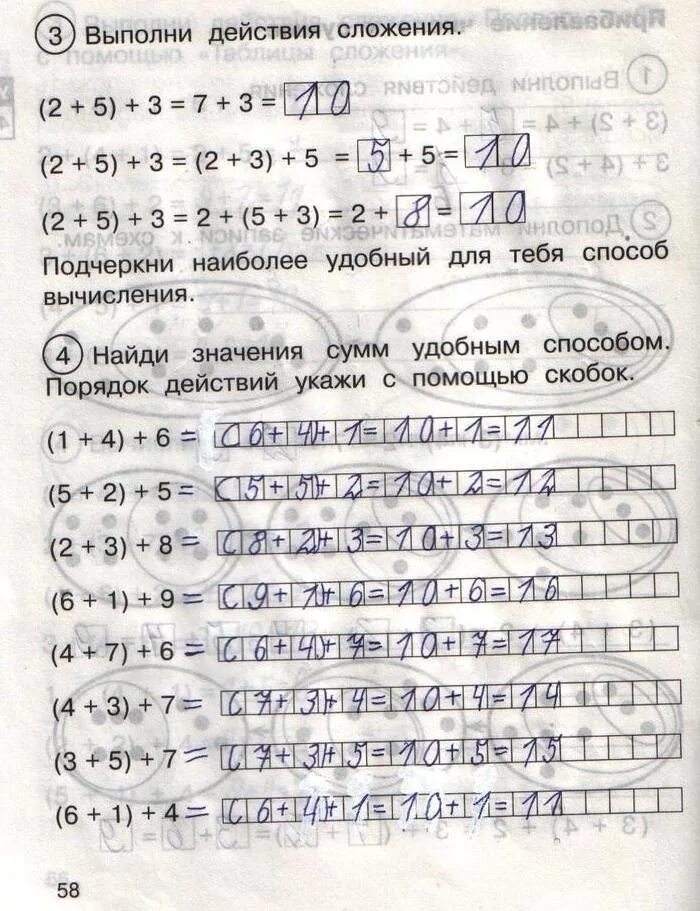 3 Выполни действия сложения.
(2 + 5) + 3 = 7 + 3 = 10
(2 + 5) + 3 = (2 + 3) + 5 = 5 + 5 = 10
(2 + 5) + 3 = 2 + (5 + 3) = 2 + 8 = 10
Подчеркни наиболее удобный для тебя способ
вычисления.
4 Найди значения сумм удобным способом.
Порядок действий укажи с помощью скобок.
(1 + 4) + 6 = (6+4)+1=10+1=11
(5 + 2) + 5 = (5+5)+2=10+2=12
(2 + 3) + 8 = (8+2)+3=10+3=13
(6 + 1) + 9 = (9+1)+6=10+6=16
(4 + 7) + 6 = (6+4)+7=10+7=17
(4 + 3) + 7 = (7+3)+4=10+4=14
(3 + 5) + 7 = (7+3)+5=10+5=15
(6 + 1) + 4 = (6+4)+1=10+1=11
58